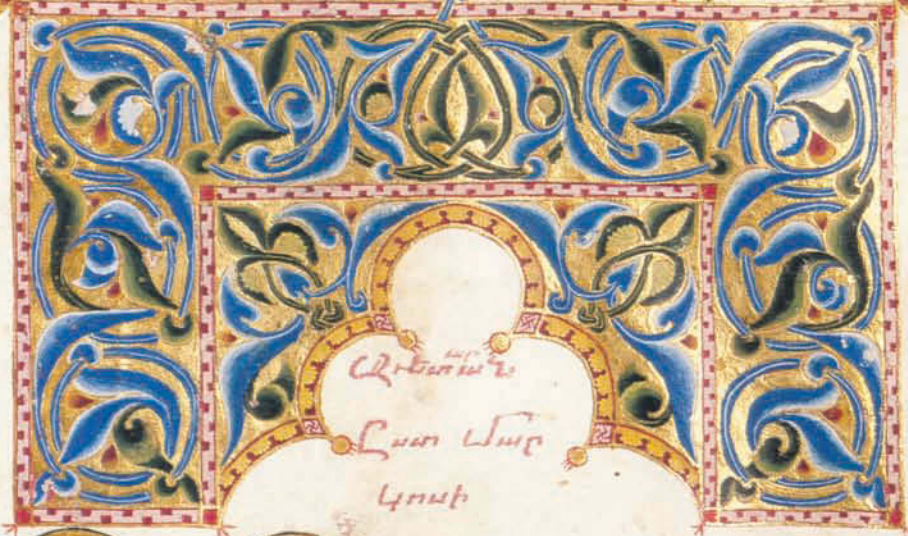 Աւետարան
Ըստ Մար
կոսի